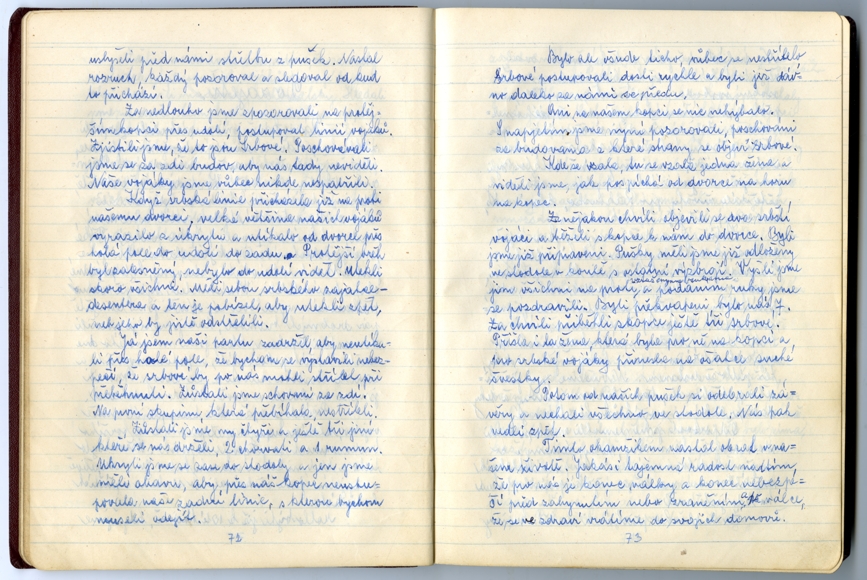 uslyšeli před námi střelbu z pušek. Nastal
rozruch, každý pozoroval a sledoval od kud
to přichází.
Za nedlouho jsme zpozorovali na protěj-
ším kopci přes údolí, postupoval linií vojáků.
Zjistili jsme, že to jsou Srbové. Poschovávali
jsme se za zdi budov, aby nás tady neviděli.
Naše vojáky jsme vůbec nikde nespatřili.
Když srbská linie přicházela již na proti
našemu dvorci, velká většina našich vojáků
vyrazilo z úkrytů a utíkalo od dvorce přes
holá pole do údolí do zadu. Protější břeh
byl zalesněný, nebylo do údolí vidět. Utekli
skoro všichni. Měli sebou srbského zajatce-
desentra a ten je pobízel, aby utekli zpět,
jinak jeho by jistě odstřelili.
Já jsem naši partu zadržel, aby neutíka-
li přes holé pole, že bychom se vystavili nebez-
pečí, že srbové by po nás mohli střílet při
přeběhnutí. Zůstali jsme schovaní za zdí.
Na první skupinu, která přibíhala, nestříleli.
Zůstali jsme, my čtyři a ještě tři jiní
kteří se nás drželi, 2 chorvati a 1 rumun.
Ukryli jsme se zase do stodoly a jen jsme
měli obavu, aby přes náš kopec neustu-
povala naše zadní linie, s kterou bychom
museli odejít.
72
Bylo ale všude ticho, vůbec se nestřílelo
Srbové postupovali dosti rychle a byli již dáv-
no daleko za námi ve předu.
Ani na našem kopci se nic nehýbalo.
S napjetím jsme nyní pozorovali, poschováni
za budovama z které strany se objeví Srbové.
Kde se vzala, tu se vzala jedna žena a
viděli jsme, jak pospíchá od dvorce na horu
na kopec.
Za nějakou chvíli objevili se dva srbští
vojáci a běželi s kopce k nám do dvorce. Byli
jsme již připraveni. Pušky měli jsme již odloženy
ve stodole v koutě s ostatní výzbrojí. Vyšli jsme
jim všichni na proti, a podáním ruky jsme
se pozdravili. Byli překvapeni bylo nás 7.
Za chvíli přiběhli s kopce ještě tři srbové.
Přišla i ta žena, která byla pro ně na kopcu a
pro srbské vojáky přinesla na ošatce suché
švestky.
Potom od našich pušek si odebrali zá-
věry a nechali všechno ve stodole. Nás pak
vedli zpět.
Tímto okamžikem nastál obrat v na-
šem životě. Jakási tajemná radost nad tím,
že pro nás je konec válkry a konec nebezpe-
čí před zahynutím nebo zraněním ve válce,
že se ve zdraví vrátíme do svojich domovů.
73